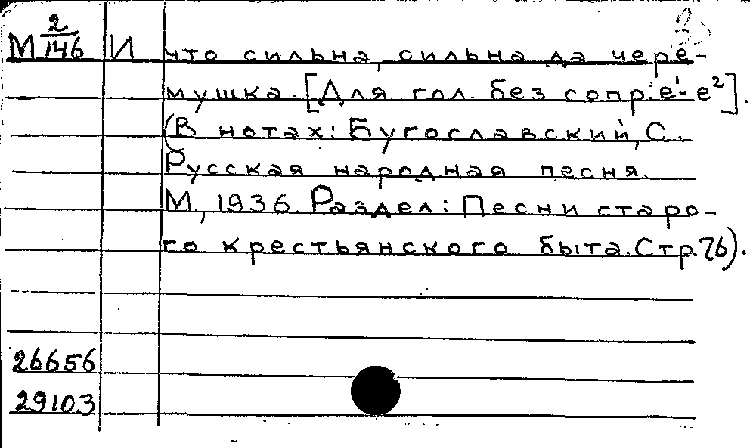 М 2/146 И что сильна, сильна да чере-
мушка. [Для гол. без сопр.: e¹-e²].
(В нотах: Бугославский, С.
Русская народная песня.
М., 1936. Раздел: Песни старо-
го крестьянского быта. Стр. 76).
26656
29103